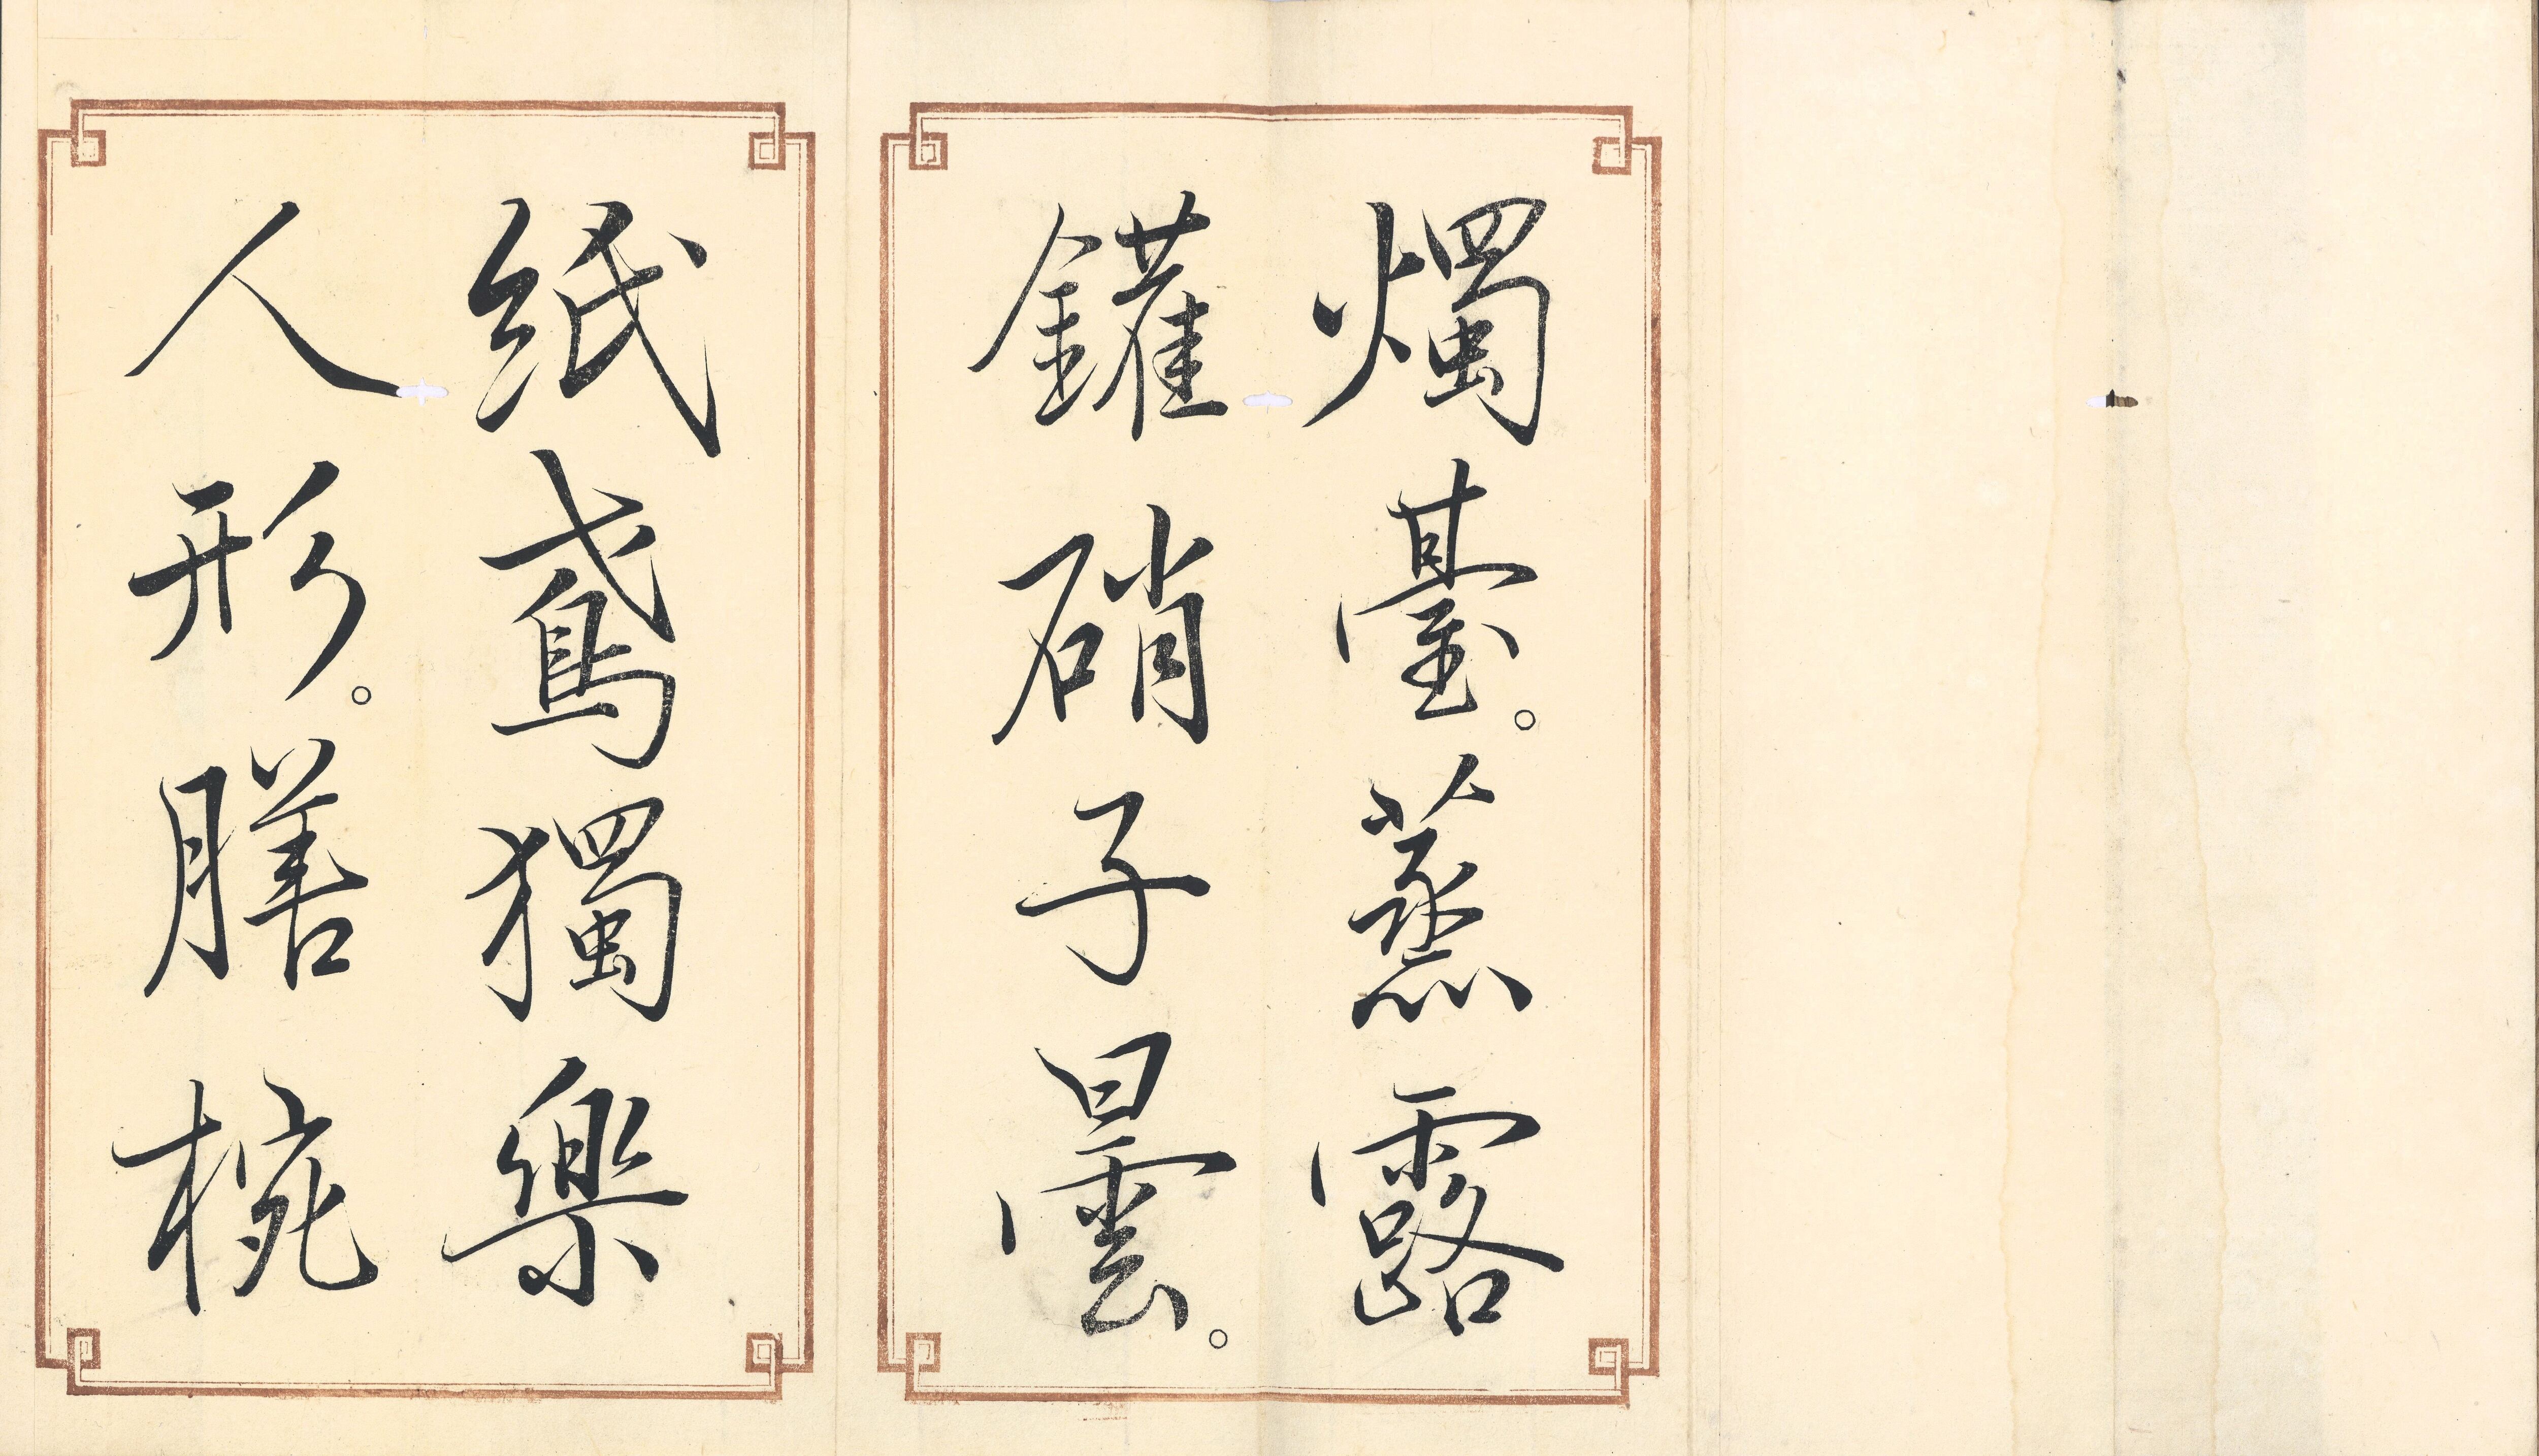 燭臺。蒸露
鑵硝子曇。
紙鳶獨樂
人形。膳椀